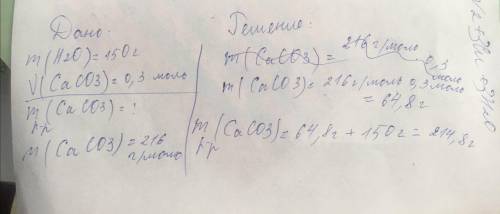 Дано:
m(H2O)=150г
V(CaCO3)=0,3 моль
m(CaCO3)=?
р-р
M(CaCO3)=216
г/моль
Решение:
m(CaCO3)= 216 г/моль 0,3
моль
m(CaCO3)=216г/моль 0,3моль
=64,8г
m(CaCO3)=64,8г+150г=214,8г
р-р